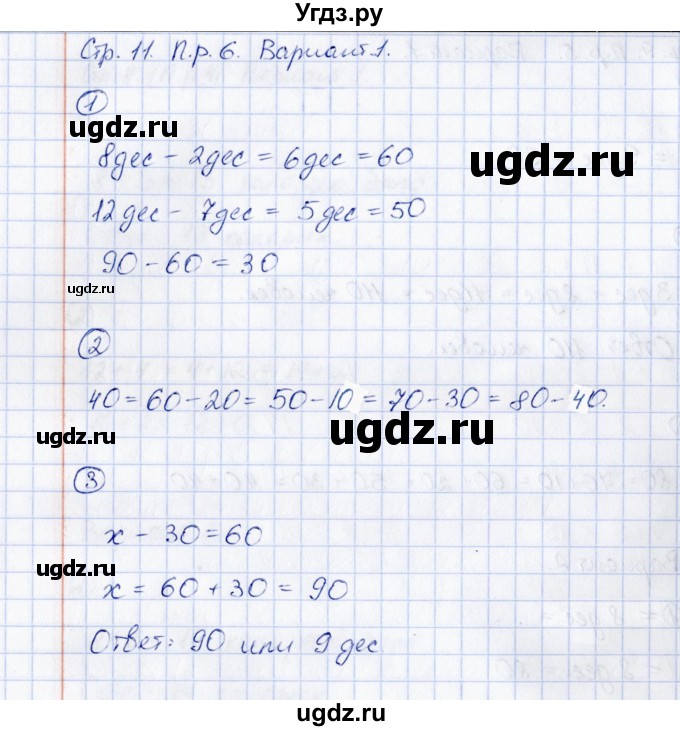 Угдз.ру
Стр. 11. П.р. 6. Вариант 1.
1
ugdz.ru
ugdz.ru
8дес - 2дес = 6дес = 60
12дес - 7дес = 5дес = 50
90 - 60 = 30
ugdz.ru
2
40 = 60 - 20 = 50 - 10 = 70 - 30 = 80 - 40.
ugdz.ru
ugdz.ru
3
x - 30 = 60
ugdz.ru
x = 60 + 30 = 90
Ответ: 90 или 9 дес
ugdz.ru
ugdz.ru